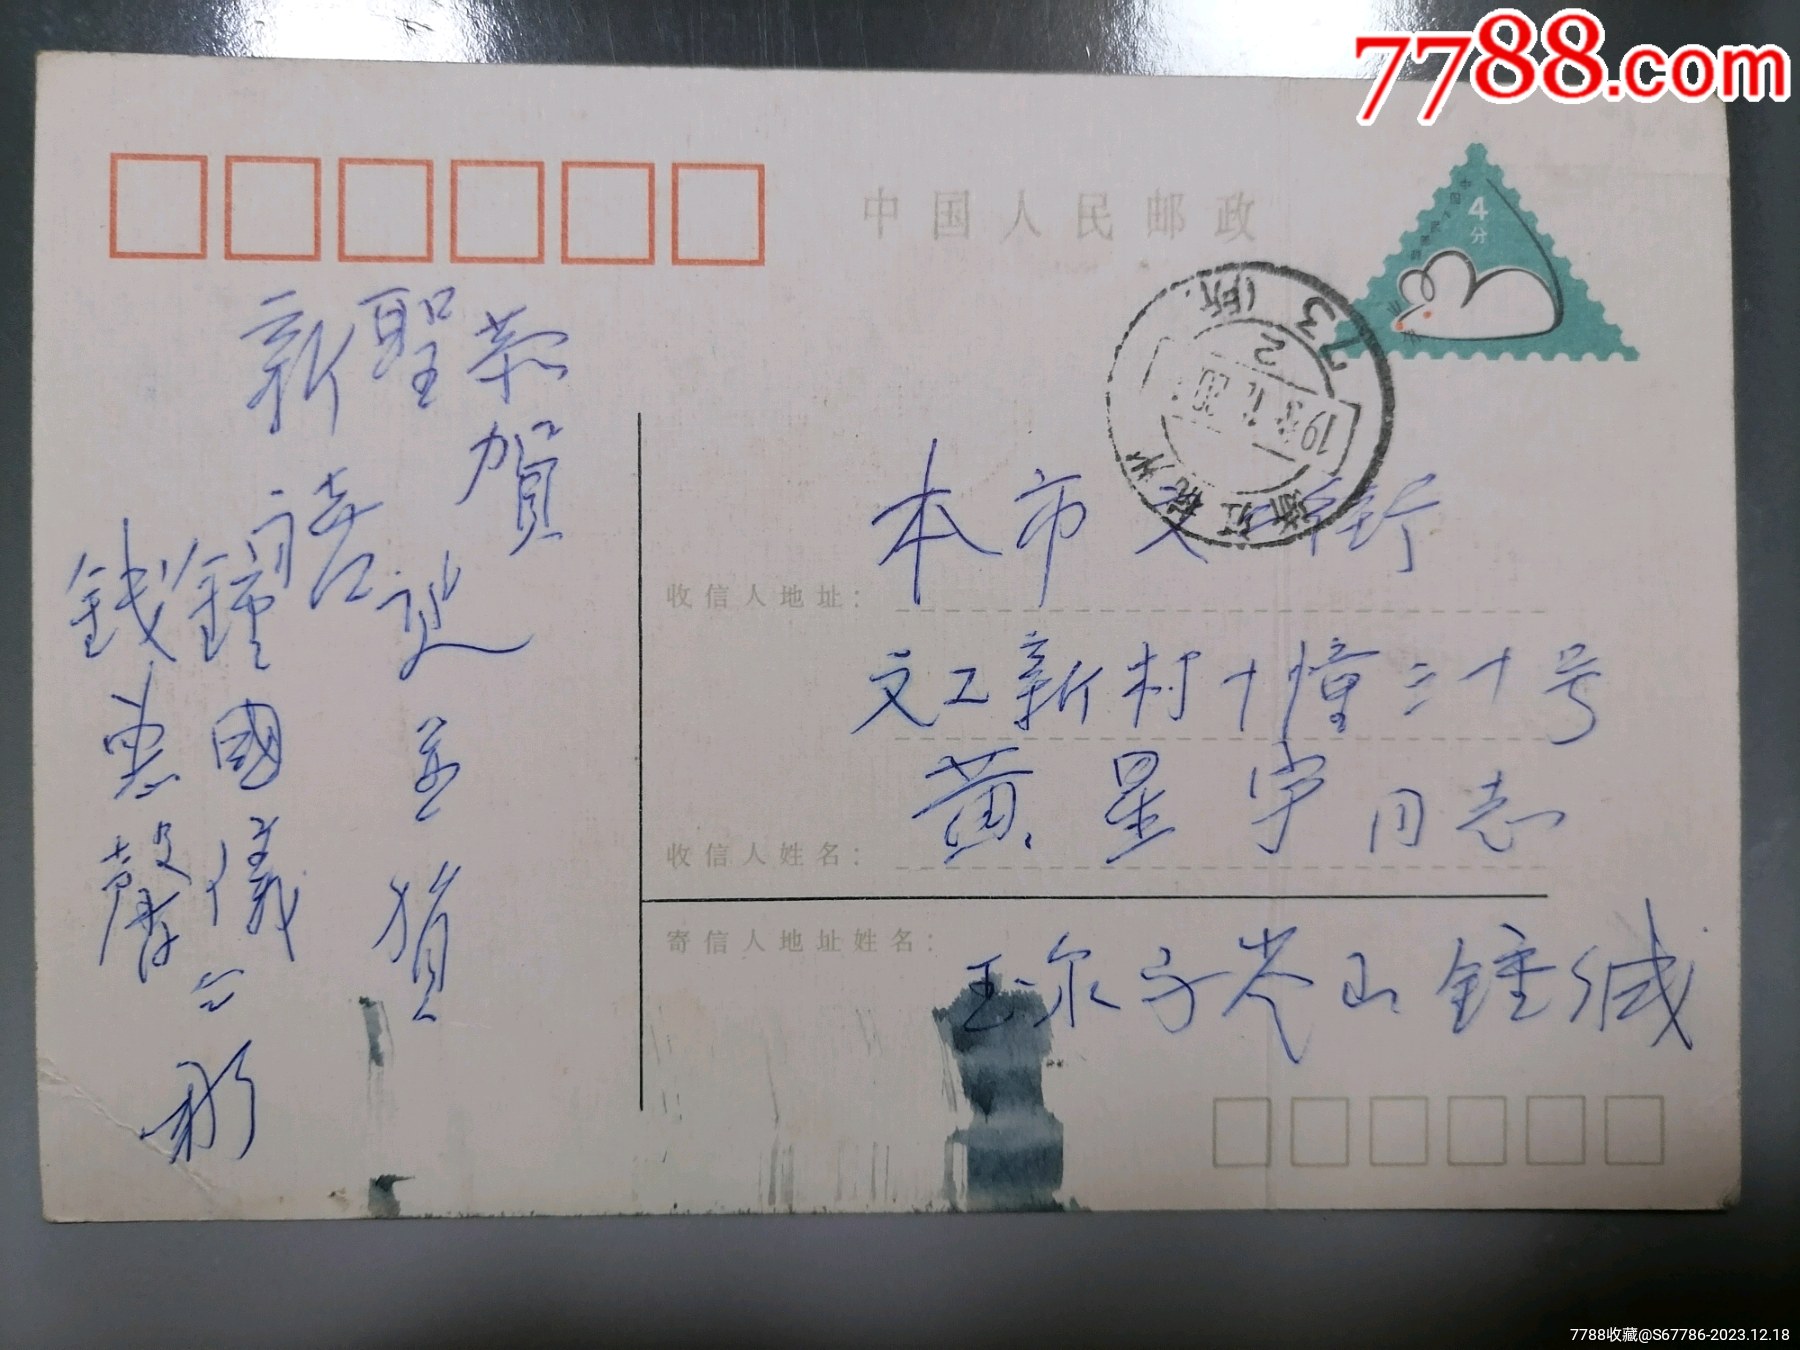 7788.com
中国人民邮政
4分
浙江杭州
73
2
本市文二街
收信人地址：
文工新村十幢二十号
收信人姓名：
黄星宇同志
寄信人地址姓名：
玉泉 山 鍾缄
恭賀
聖誕並頌
新禧
鍾國儀
錢惠馨
7788收藏@S67786-2023.12.18